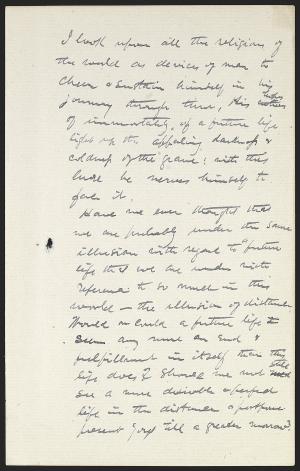 I look upon all the religions of
the world as devices of man to
cheer & sustain himself in his
journey through time, this
of immortality, of a future life
lights up the appalling darkness &
coldness of the grave: with this
he nerves himself to
face it.
Have we ever thought that
we are probably under the same
illusion with regard to a future
life that we are under with
reference to so much in this
world — the illusion of distance
Would or could a future life
seem any more an end &
fulfillment in itself than this
life does? Should we not still
see a more desirable & perfect
life in the distance & postpone
present joys till a greater morrow?